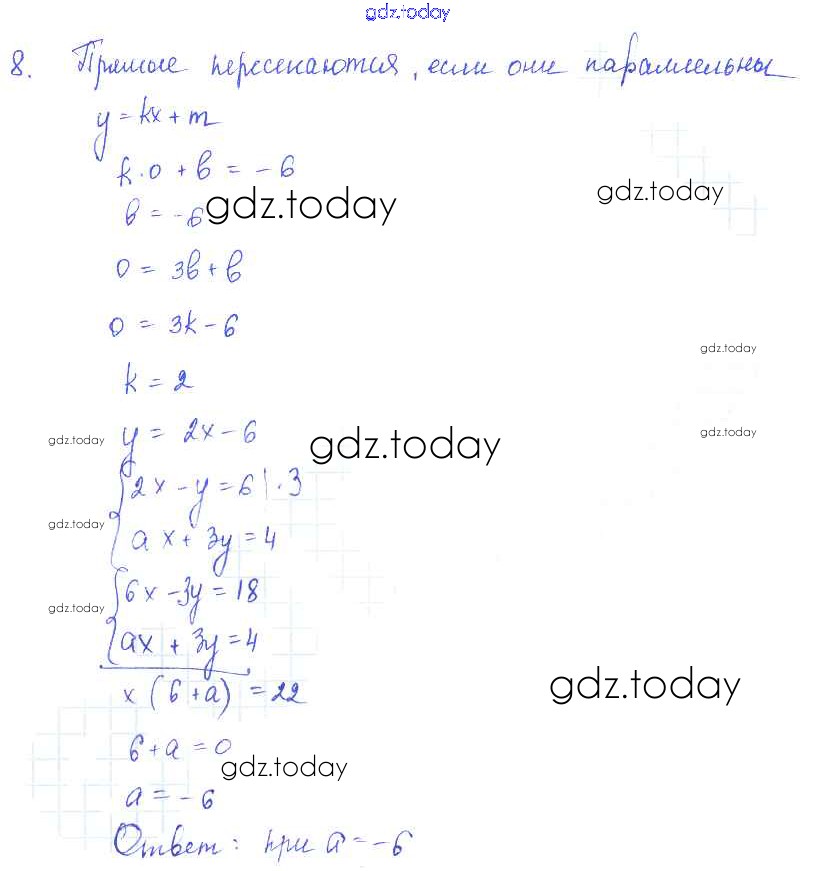 gdz.today
8. Прямые пересекаются, если они параллельны
y = kx + m
k·0 + b = -6
gdz.today
b = -6 gdz.today
0 = 3b + b
0 = 3k - 6
gdz.today
k = 2
gdz.today y = 2x - 6 gdz.today gdz.today
{2x - y = 6 | ·3
gdz.today
ax + 3y = 4
{6x - 3y = 18
gdz.today
ax + 3y = 4
x (6 + a) = 22 gdz.today
6 + a = 0
gdz.today
a = -6
Ответ: при a = -6